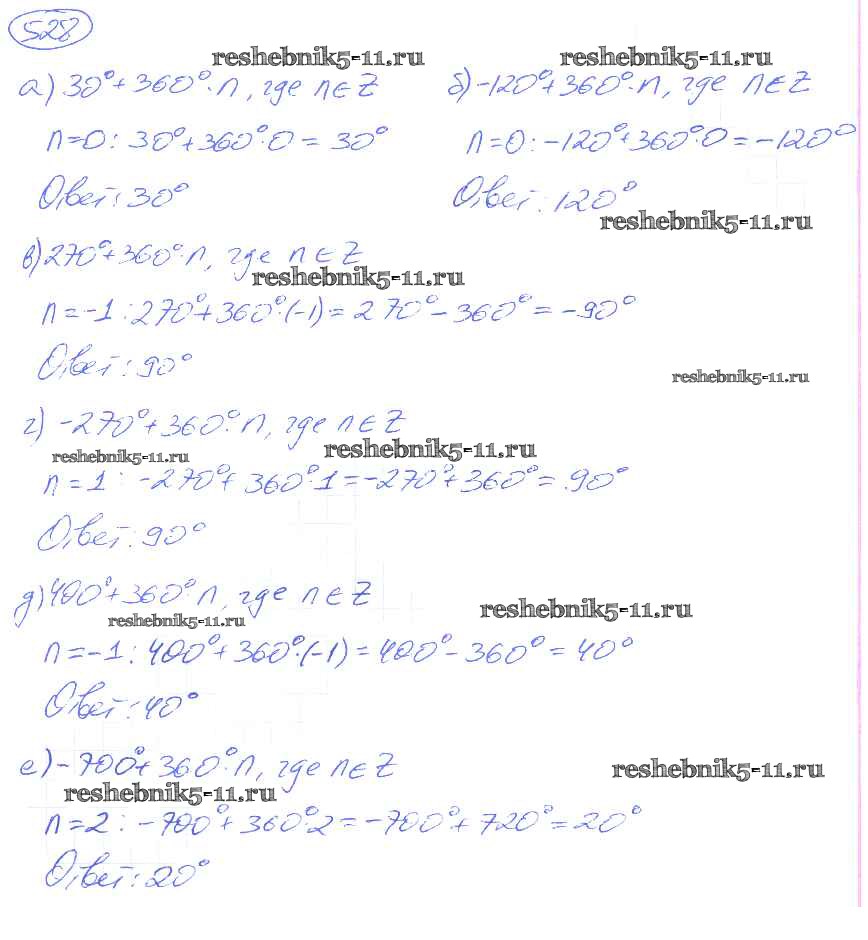 528
reshebnik5-11.ru reshebnik5-11.ru
а) 30°+360°·n, где n∈Z б) -120°+360°·n, где n∈Z
n=0: 30°+360°·0=30° n=0: -120°+360°·0=-120°
Ответ: 30° Ответ: 120°
reshebnik5-11.ru
в) 270°+360°·n, где n∈Z
reshebnik5-11.ru
n=-1: 270°+360°·(-1)=270°-360°=-90°
Ответ: 90°
reshebnik5-11.ru
г) -270°+360°·n, где n∈Z
reshebnik5-11.ru reshebnik5-11.ru
n=1: -270°+360°·1=-270°+360°=90°
Ответ: 90°
д) 400°+360°·n, где n∈Z
reshebnik5-11.ru reshebnik5-11.ru
n=-1: 400°+360°·(-1)=400°-360°=40°
Ответ: 40°
е) -700°+360°·n, где n∈Z
reshebnik5-11.ru reshebnik5-11.ru
n=2: -700°+360°·2=-700°+720°=20°
Ответ: 20°